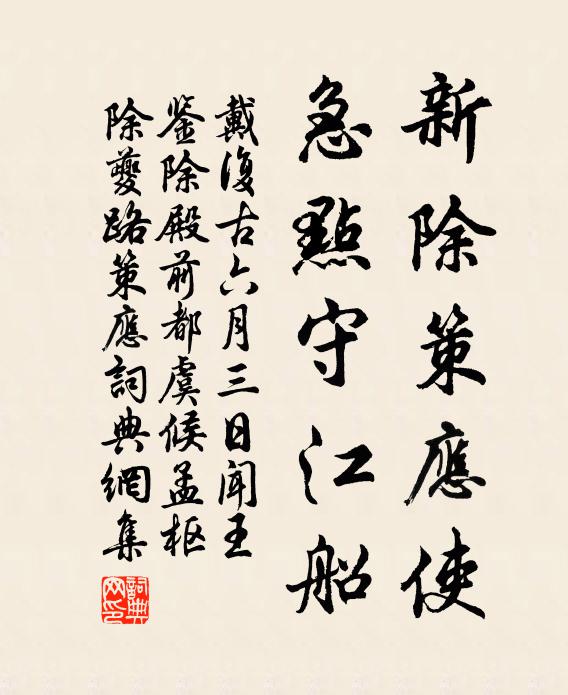 新除策應使
急點守江船
戴復古六月三日聞王
鉴除殿前都虞候孟枢
除夔路策應詞典網集
詞典网印